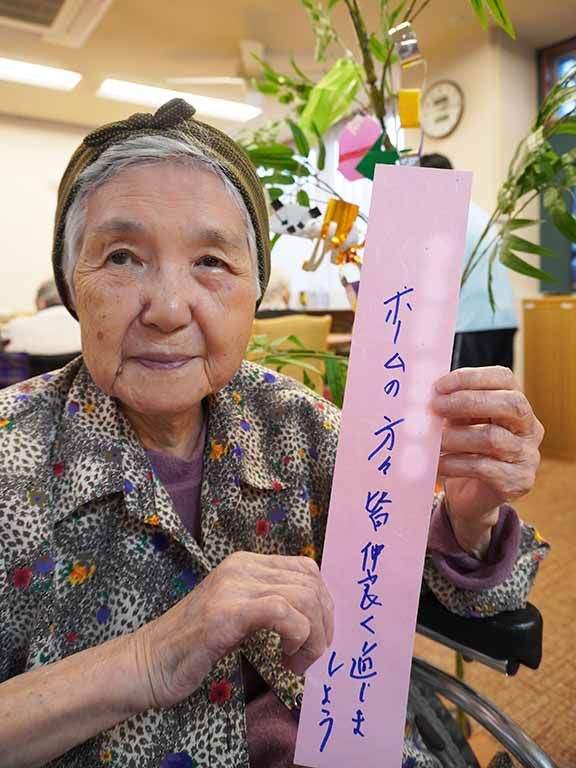 ホームの方々皆仲良く過しま
しょう